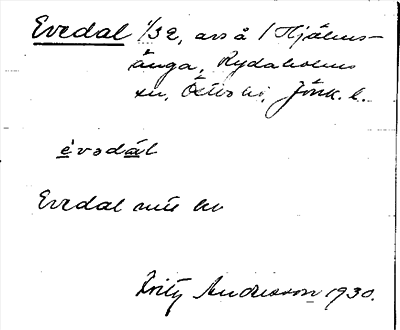 Evedal 1/32, avs å 1 Hjälms-
änga, Rydaholms
sn, Östbo hd, Jönk. l.
èvədál
Evedal
Fritz Andersson 1930.